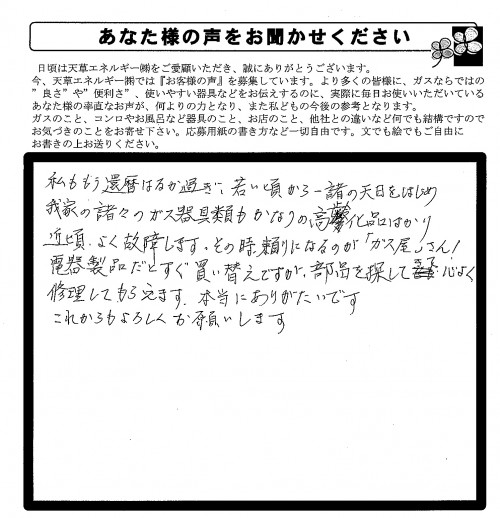 あなた様の声をお聞かせください
日頃は天草エネルギー㈱をご愛顧いただき、誠にありがとうございます。
今、天草エネルギー㈱では『お客様の声』を募集しています。より多くの皆様に、ガスならではの
”良さ”や”便利さ”、使いやすい器具などをお伝えするのに、実際に毎日お使いいただいている
あなた様の率直なお声が、何よりの力となり、また私どもの今後の参考となります。
ガスのこと、コンロやお風呂など器具のこと、お店のこと、他社との違いなど何でも結構ですので
お気づきのことをお寄せ下さい。応募用紙の書き方など一切自由です。文でも絵でもご自由に
お書きの上お送りください。
私ももう還暦はるか過ぎ、若い頃から一諸の天日をはじめ
我家の諸々のガス器具類もかなりの高 化品ばかり
近頃よく故障します。その時頼りになるのが「ガス屋」さん!
電器製品だとすぐ買い替えですが、部品を探して 心よく
修理してもらえます。本当にありがたいです
これからもよろしくお願いします